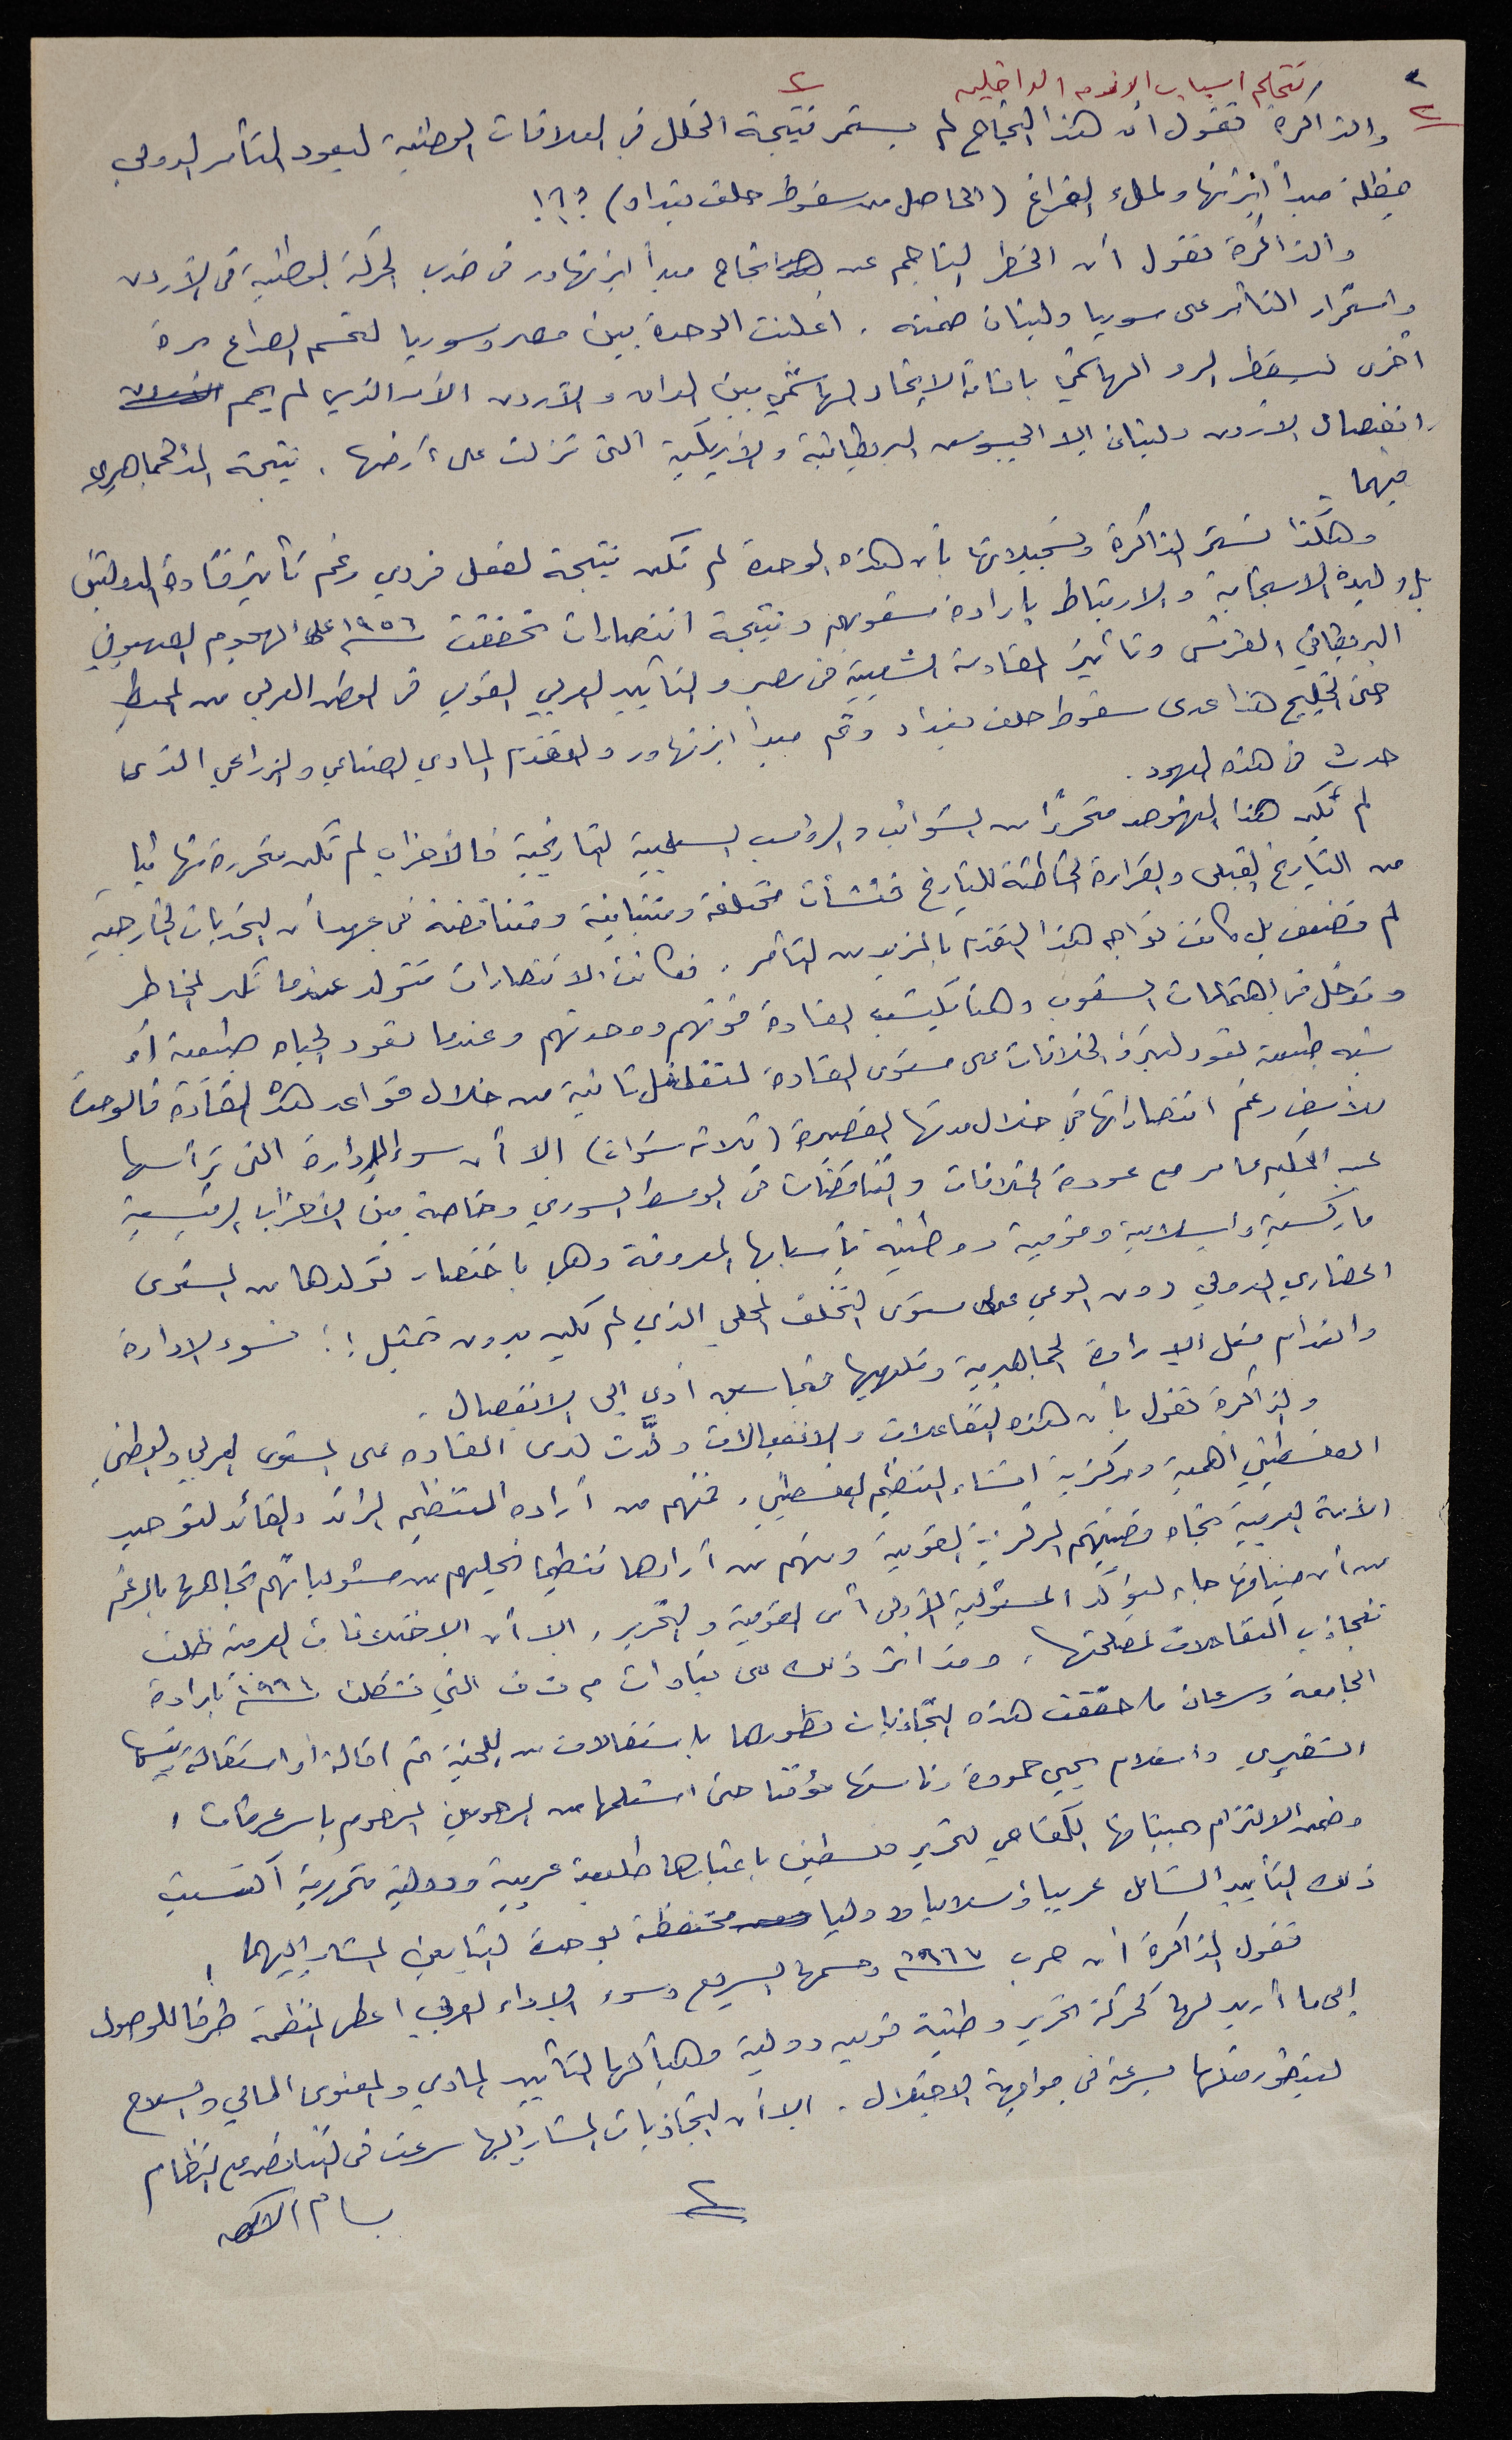 ٢
نتعلم اسباب الازمه الداخليه
٢
٢
والذاكرة تقول أن هذا النجاح لم يستمر نتيجة الخلل في العلاقات الوطنية ليعود التآمر الدولي
مبدأ ايزنهاور لملء الفراغ (الحاصل من سقوط حلف بغداد) !؟؟
والذاكرة تقول أن الخطر الناجم عن نجاح مبدأ ايزنهاور في ضرب الحركة الوطنية في الأردن
واستمرار التآمر على سوريا ولبنان ضمنه . اعلنت الوحدة بين مصر وسوريا لتحسم الصراع مرة
أخرى ليسقط الرد الهاشمي باقامة الاتحاد الهاشمي بين العراق والأردن الأمر الذي لم يحم
انفصال الاردن ولبنان الا الجيوش البريطانية والأمريكية التي نزلت على أرضها . نتيجة المد الجماهيري
فيهما .
وهكذا تستمر الذاكرة وتسجيلاتها بأن هذه الوحدة لم تكن نتيجة لفعل فردي رغم تأثير قادة الدولتين
بل وليدة الاستجابة والارتباط بإرادة شعوبهم ونتيجة انتصارات تحققت ١٩٥٦ على الهجوم الصهيوني
البريطاني الفرنسي وتأثير المقاومة الشعبية في مصر والتأييد العربي القوي في الوطن العربي من المحيط
حتى الخليج هذا عدى سقوط حلف بغداد وثم مبدأ ايزنهاور والتقدم المادي الصناعي والزراعي الذي
حدث في هذه العهود .
لم يكن هذا النهوض متحررا من الشوائب والرواسب السلبية التاريخية فالأحزاب لم تكن متحررة نهائيا
من التاريخ القبلي والقراءة الخاطئة للتاريخ فنشأت مختلفة ومتباينة ومتناقضة في عهد أن التحديات الخارجية
لم تضعف بل كانت تواجه هذا التقدم بالمزيد من التآمر . فكانت الانتصارات تتولد عندما تكبر المخاطر
وتدخل في اهتمامات الشعوب وهنا يكتسب القادة قوتهم ووحدتهم وعندما تعود الحياه طبيعية أو
شبه طبيعية تعود لتبرز الخلافات على مستوى القادة لتتغلغل ثانية من خلال قواعد هذه القادة فالوحدة
للأسف رغم انتصاراتها في خلال مدتها القصيرة (ثلاثة سنوات) الا أن سوء الإدارة التي ترأسها
عبد الحكيم عامر مع عودة الخلافات والتناقضات في الوسط السوري وخاصة بين الأحزاب الرئيسية
ماركسية واسلامية وقومية ووطنية بأسبابها المعروفة وهي باختصار تولدها من المستوى
الحضاري الدولي دون الوعي على مستوى التخلف المحلي الذي لم يكن بدون تمثيل !؛ فسوء الادارة
وانعدام فعل الإرادة الجماهيرية أدى الى الانفصال .
والذاكرة تقول بأن هذه التفاعلات والانفعالات ولّدت لدى القادة على المستوى العربي والوطني
الفلسطيني أهمية ومركزية انشاء التنظيم الفلسطيني ، فمنهم من أراده التنظيم الرائد والقائد لتوحيد
الأمة العربية تجاه قضيتهم المركزية القومية ومنهم من أرادها تنظيما يخليهم من مسئولياتهم تجاهها بالرغم
من أن ميثاقها جاء ليؤكد المسئولية الأولى أي القومية والتحرير . الا أن الاختلافات العربية ظلت
تتجاذب التفاعلات لمصلحتها ، وقد اثر ذلك على قيادات م ت ف التي تشكلت ١٩٦٤ بإرادة
الجامعة وسرعان ما حققت هذه التجاذبات تطورها باستقالات من اللجنة ثم اقالة أو استقالة رئيسها
الشقيري واستلام يحيى حمودة رئاستها مؤقتا حتى استلمها من المرحومين المرحوم ياسر عرفات ،
وضمن الالتزام بميثاقها الكفاحي لتحرير فلسطين باعتبارها طليعة عربية ودولية متحررية اكتسبت
ذلك التأييد الشامل عربيا وأسلاميا ودوليا محتفظة بوحدة التباعين المشار اليهما !
تقول الذاكرة أن حرب ١٩٦٧ وحسمها السريع وسوء الاداء العربي اعطى المنظمة ظرفا للوصول
إلى ما أريد لها كحركة تحرير وطنية قوميه دولية وهيأ لها التأييد المادي والمعنوي المالي والسلاح
ليتطور فعلها بسرعة في مواجهة الاحتلال . الا أن التجاذبات المشار اليها سرعت في التناقض مع النظام
٢
بسام الشكعه